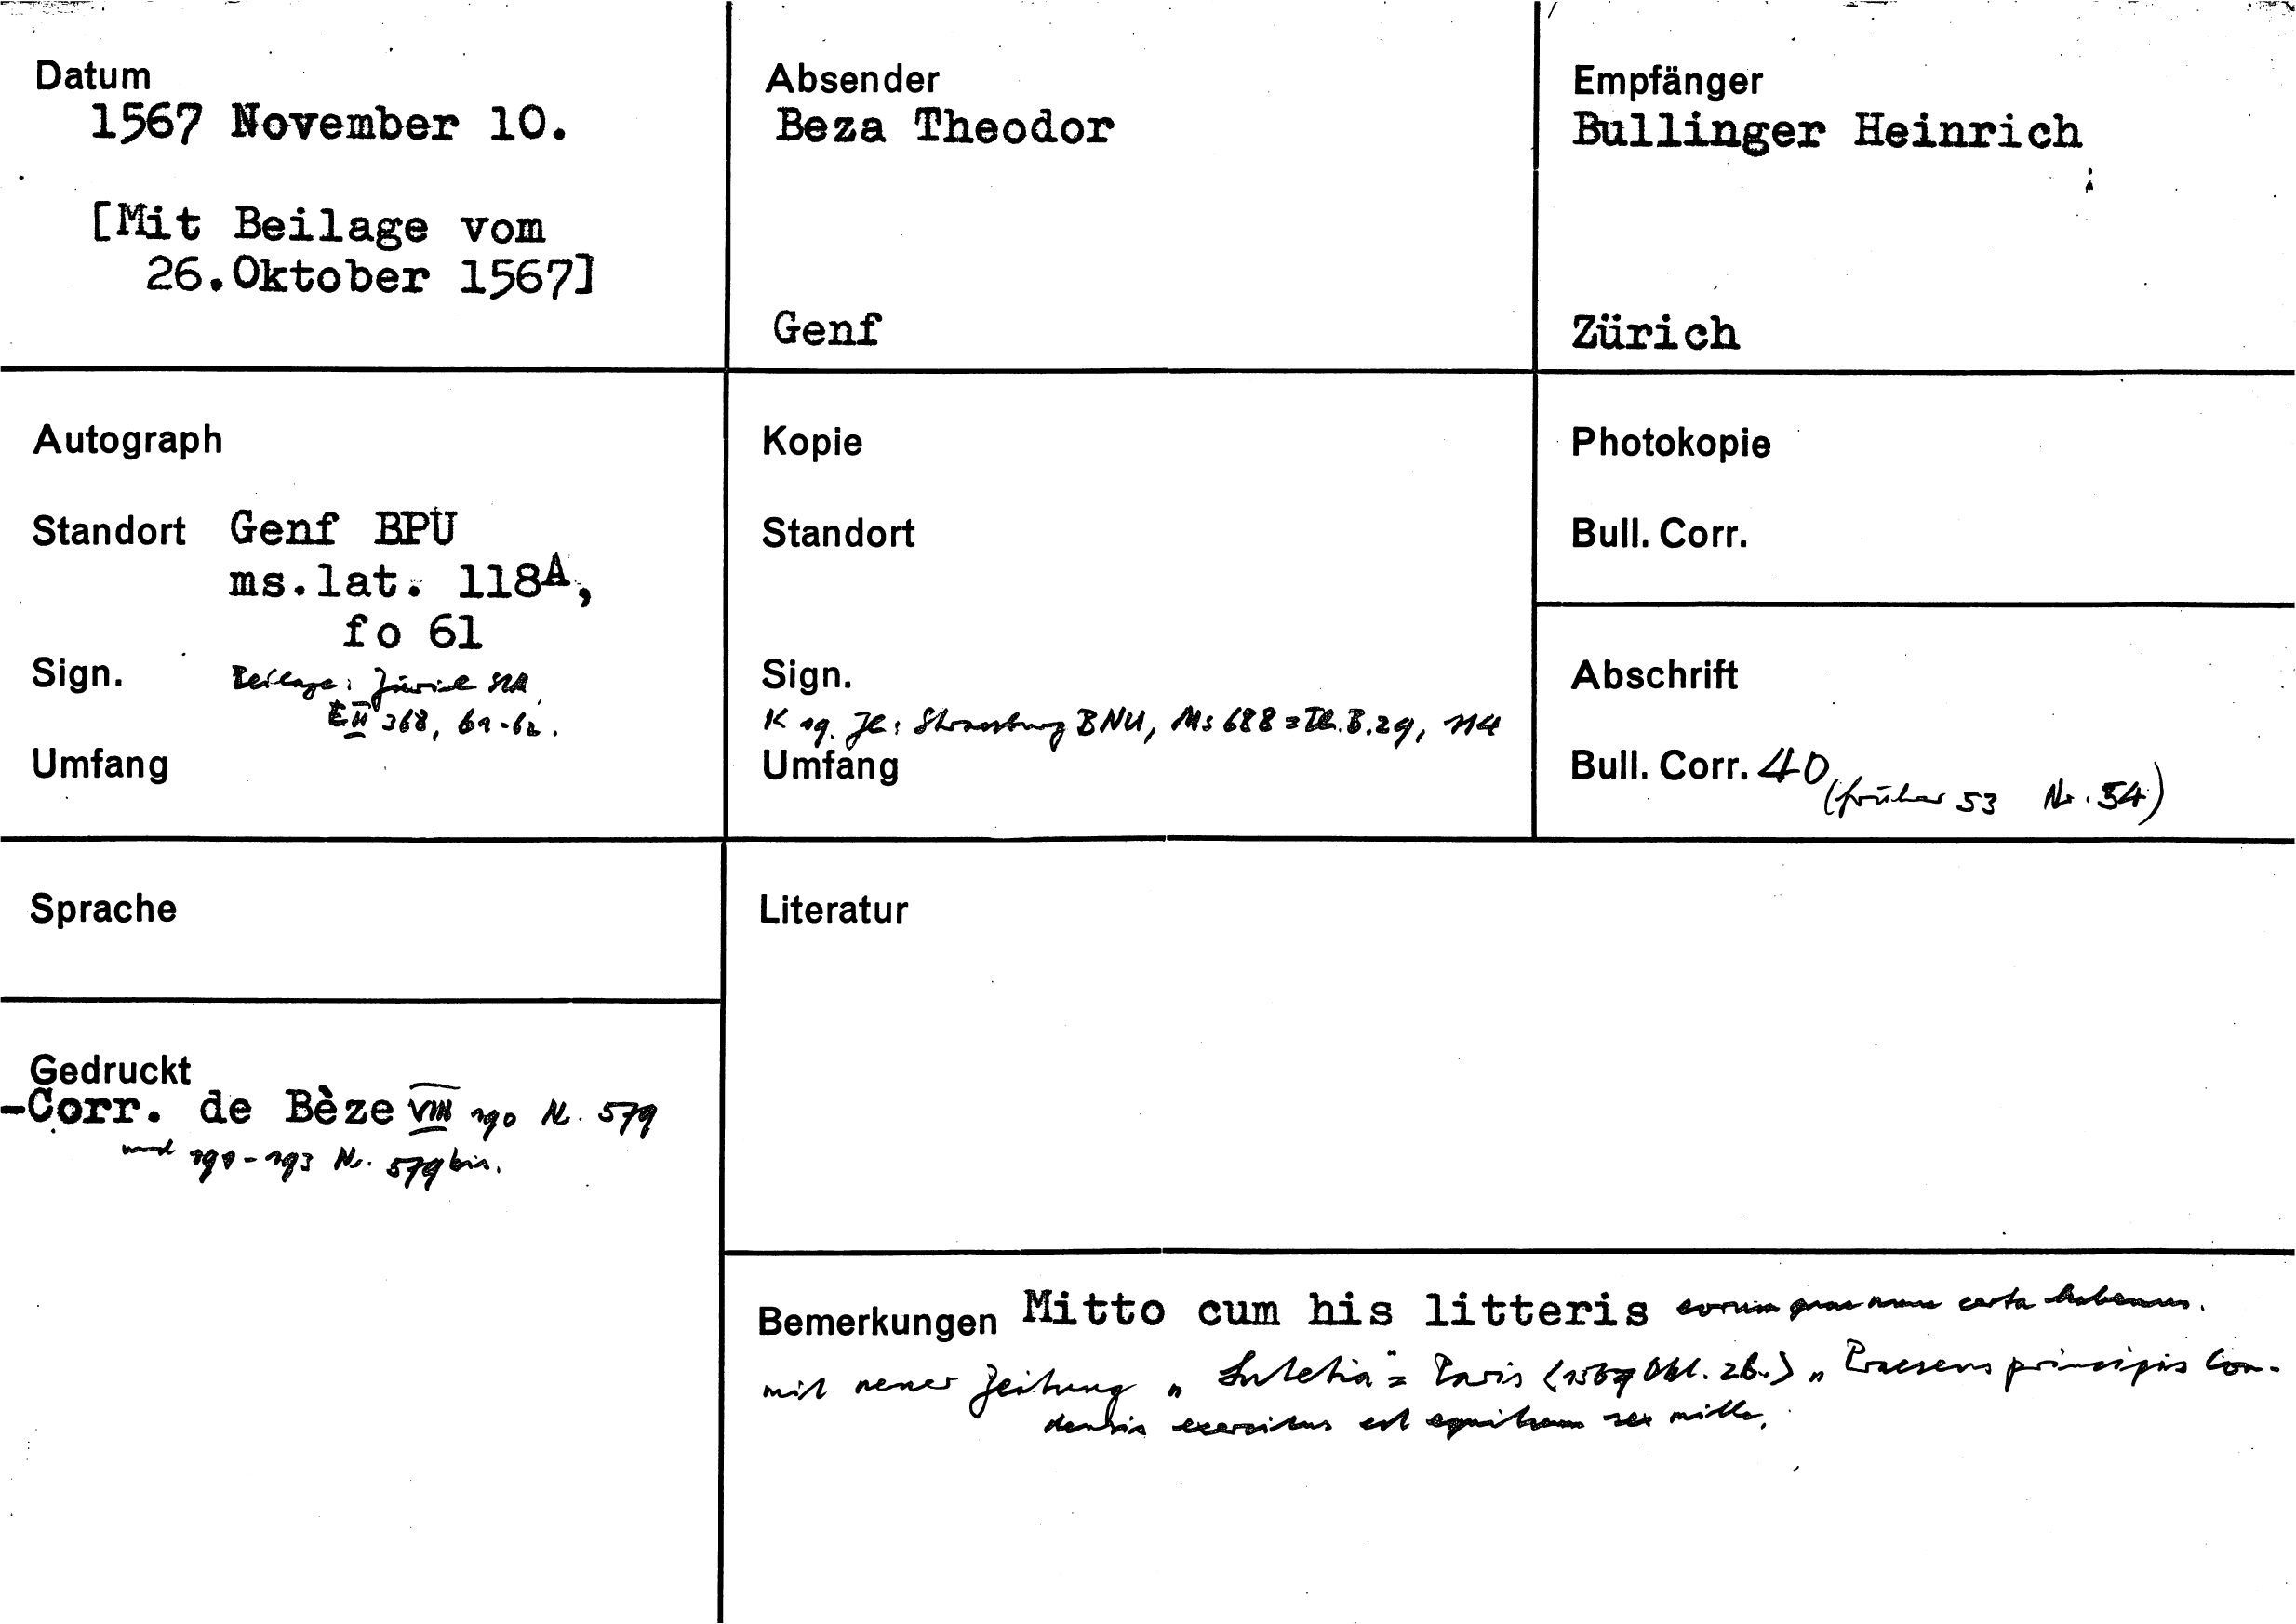 Datum
1567 November 10.
[Mit Beilage vom
26.Oktober 1567]
Absender
Beza Theodor
Genf
Empfänger
Bullinger Heinrich
Zürich
Autograph
Standort Genf BPU
ms.lat. 118A,
fo 61
Sign. Beilage: Zürich StA
E II 368, 61-62.
Umfang
Kopie
Standort
Sign.
K 19. Jh: Strassburg BNU, Ms 688 = Th. B. 29, 114
Umfang
Photokopie
Bull. Corr.
Abschrift
Bull. Corr. 40 (früher 53 Nr. 54)
Sprache
Gedruckt
-Corr. de Bèze VIII 190 Nr. 579
und 191-193 Nr. 579 bis.
Literatur
Bemerkungen Mitto cum his litteris eorum quae nunc certa habemus.
mit neuer Zeitung „Lutetia" = Paris (1567 Okt. 26.) „Praesens principis Con-
densis exercitus est equitum sex mille.